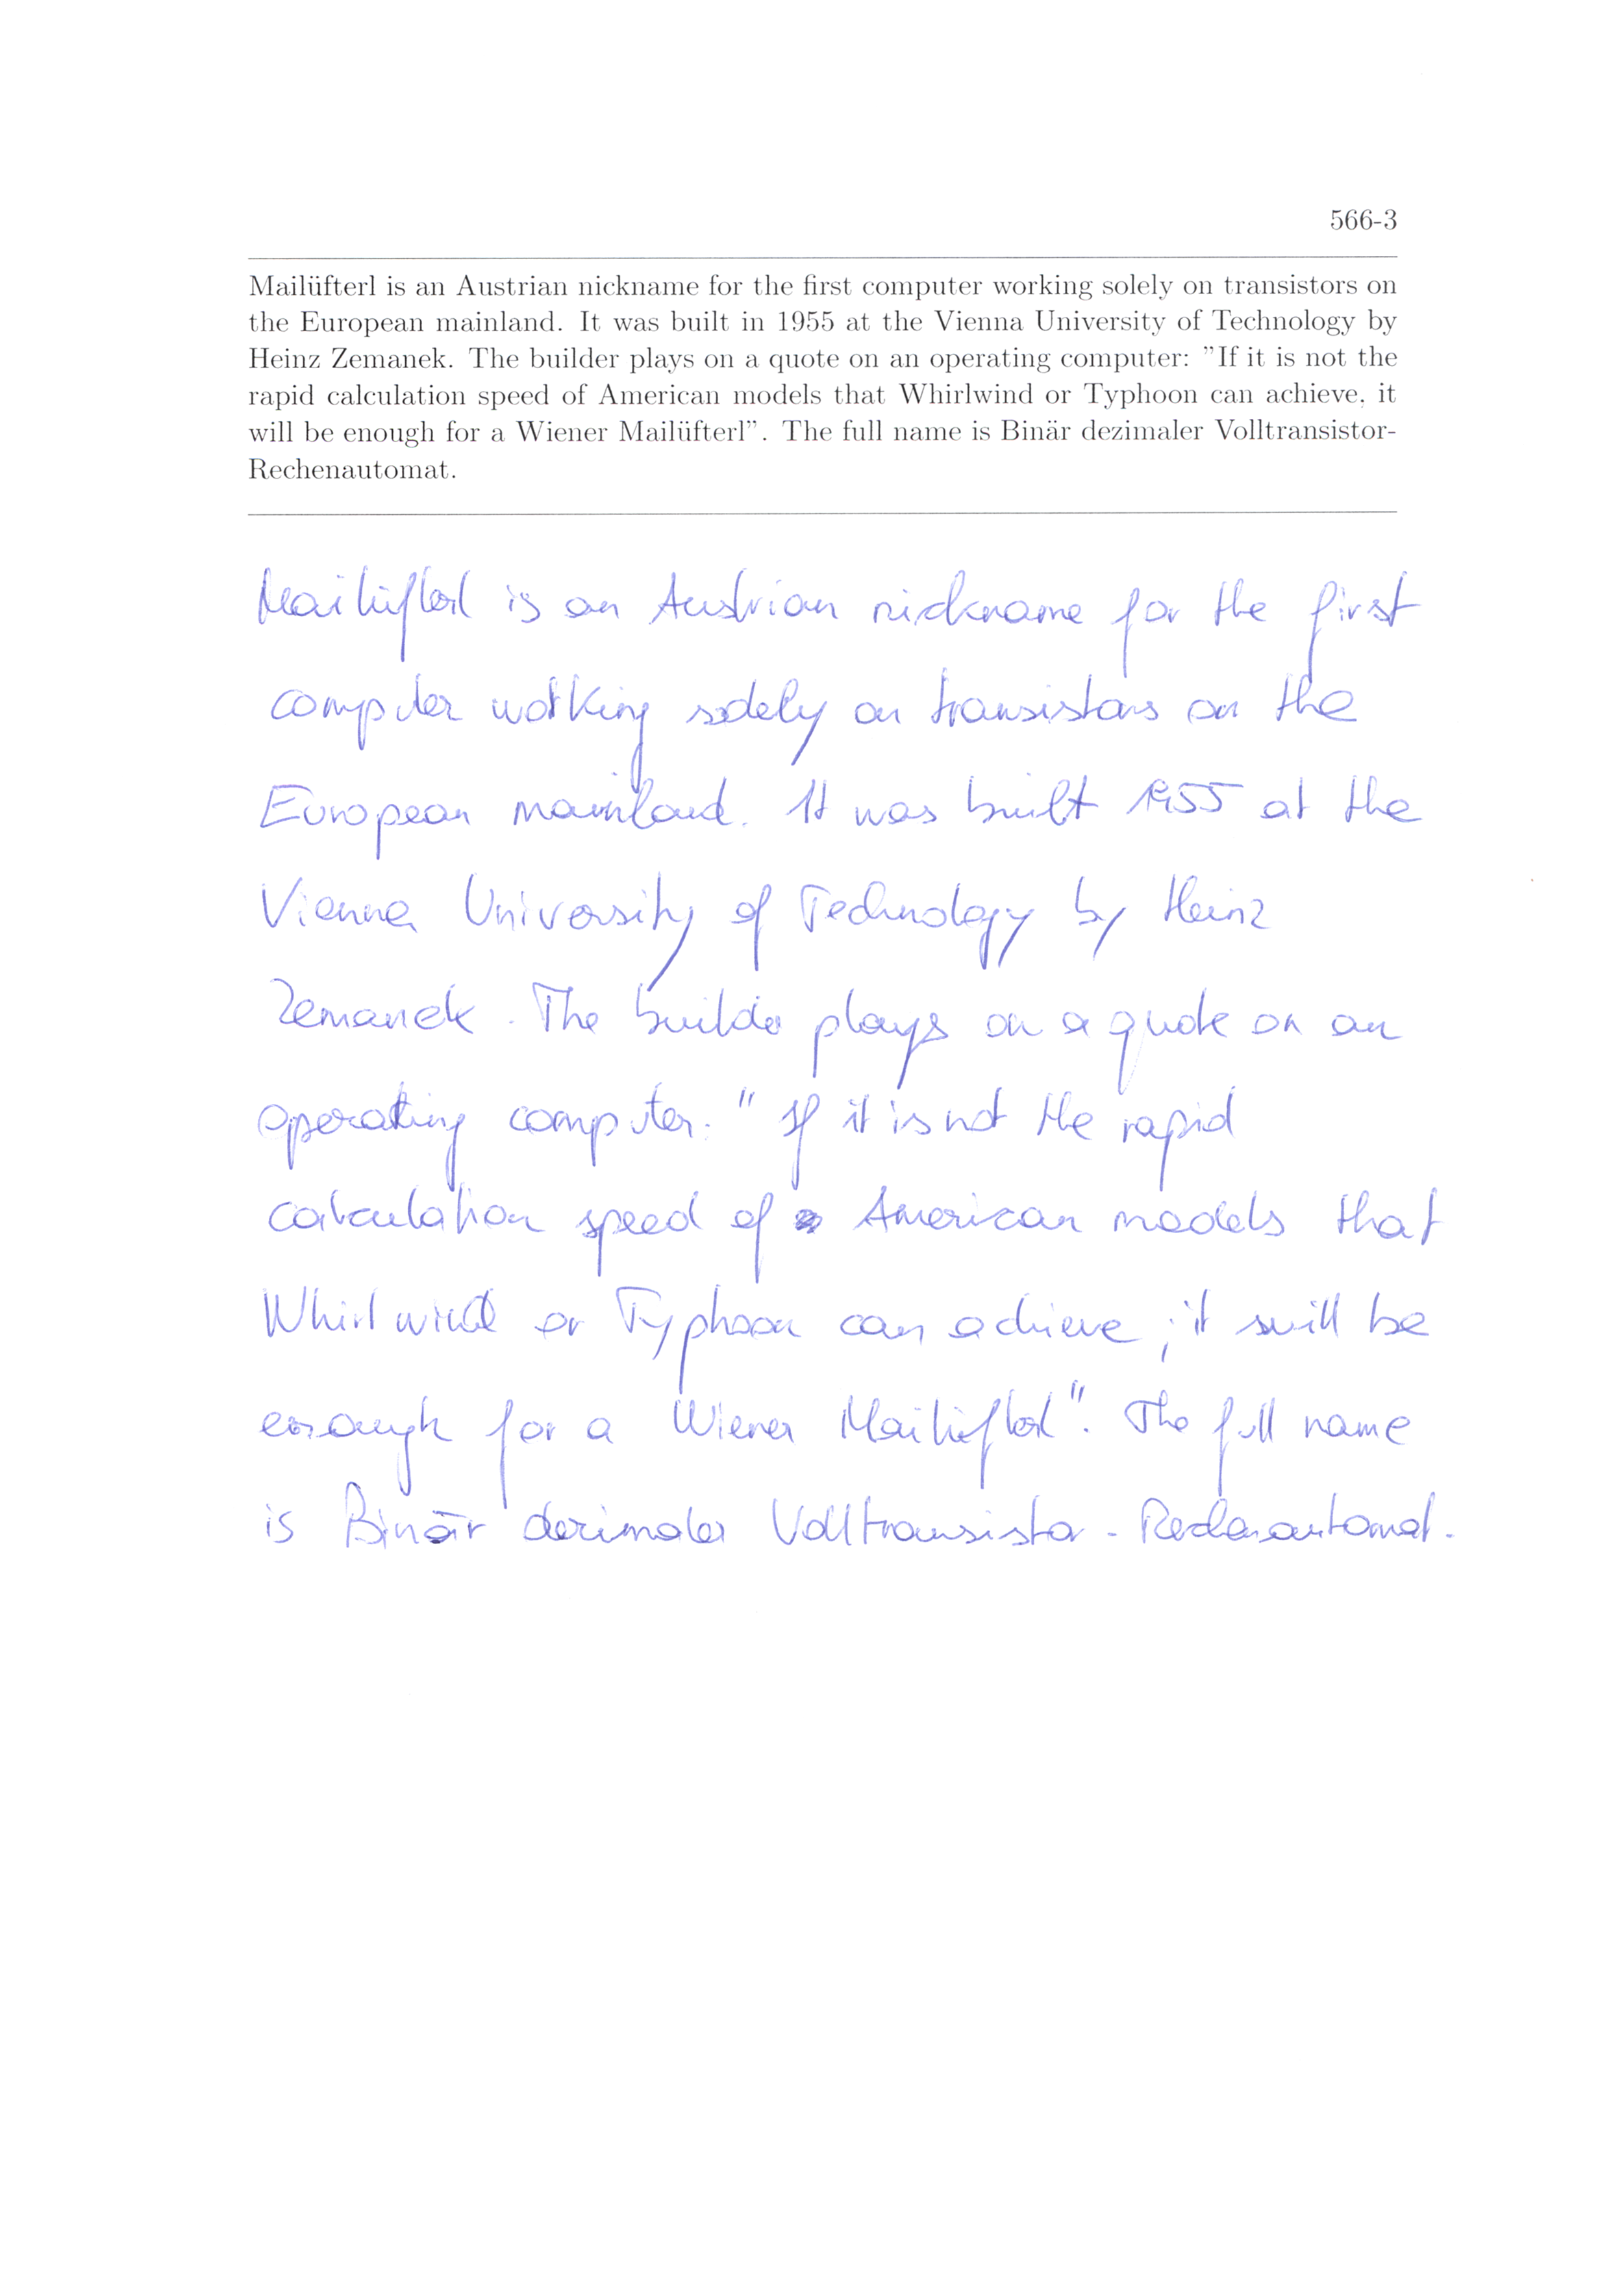 566-3
Mailüfterl is an Austrian nickname for the first computer working solely on transistors on
the European mainland. It was built in 1955 at the Vienna University of Technology by
Heinz Zemanek. The builder plays on a quote on an operating computer: "If it is not the
rapid calculation speed of American models that Whirlwind or Typhoon can achieve, it
will be enough for a Wiener Mailüfterl". The full name is Binär dezimaler Volltransistor-
Rechenautomat.
Mailüfterl is an Austrian nickname for the first
computer working solely on transistors on the
European mainland. It was built 1955 at the
Vienna University of Technology by Heinz
Zemanek. The builder plays on a quote on an
operating computer: "If it is not the rapid
calculation speed of American models that
Whirlwind or Typhoon can achieve, it will be
enough for a Wiener Mailüfterl". The full name
is Binär dezimaler Volltransistor-Rechenautomat.